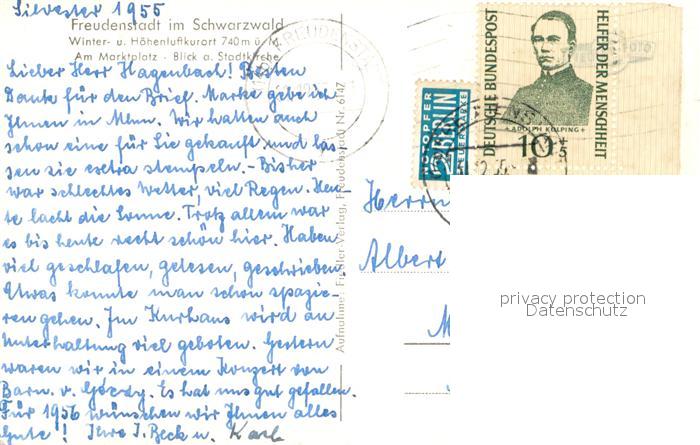 Silvester 1955
Freudenstadt im Schwarzwald
Winter- u. Höhenluftkurort 740 m ü. M.
Am Marktplatz - Blick a. Stadtkirche
Lieber Herr Hagenbach! Besten
Dank für den Brief. Marke gebe ich
Ihnen in Mhm. Wir hatten auch
schon eine für Sie gekauft und las-
sen sie extra stempeln. - Bisher
war schlechtes Wetter, viel Regen. Heu-
te lacht die Sonne. Trotz allem war
es bis heute recht schön hier. Haben
viel geschlafen, gelesen, geschrieben.
Etwas konnte man schon spazie-
ren gehen. Im Kurhaus wird an
Unterhaltung viel geboten. Gestern
waren wir in einem Konzert von
Barn. v. Géczy. Es hat uns gut gefallen.
Für 1956 wünschen wir Ihnen alles
Gute! Ihre I. Beck u. Karl
Aufnahme: Fiedler-Verlag, Freudenstadt Nr. 6147
FREUDENSTADT
NOTOPFER
2 BERLIN
STEUERMARKE
DEUTSCHE BUNDESPOST
HELFER DER MENSCHHEIT
+ADOLPH KOLPING+
10+5
Herrn
Albert
M
privacy protection
Datenschutz